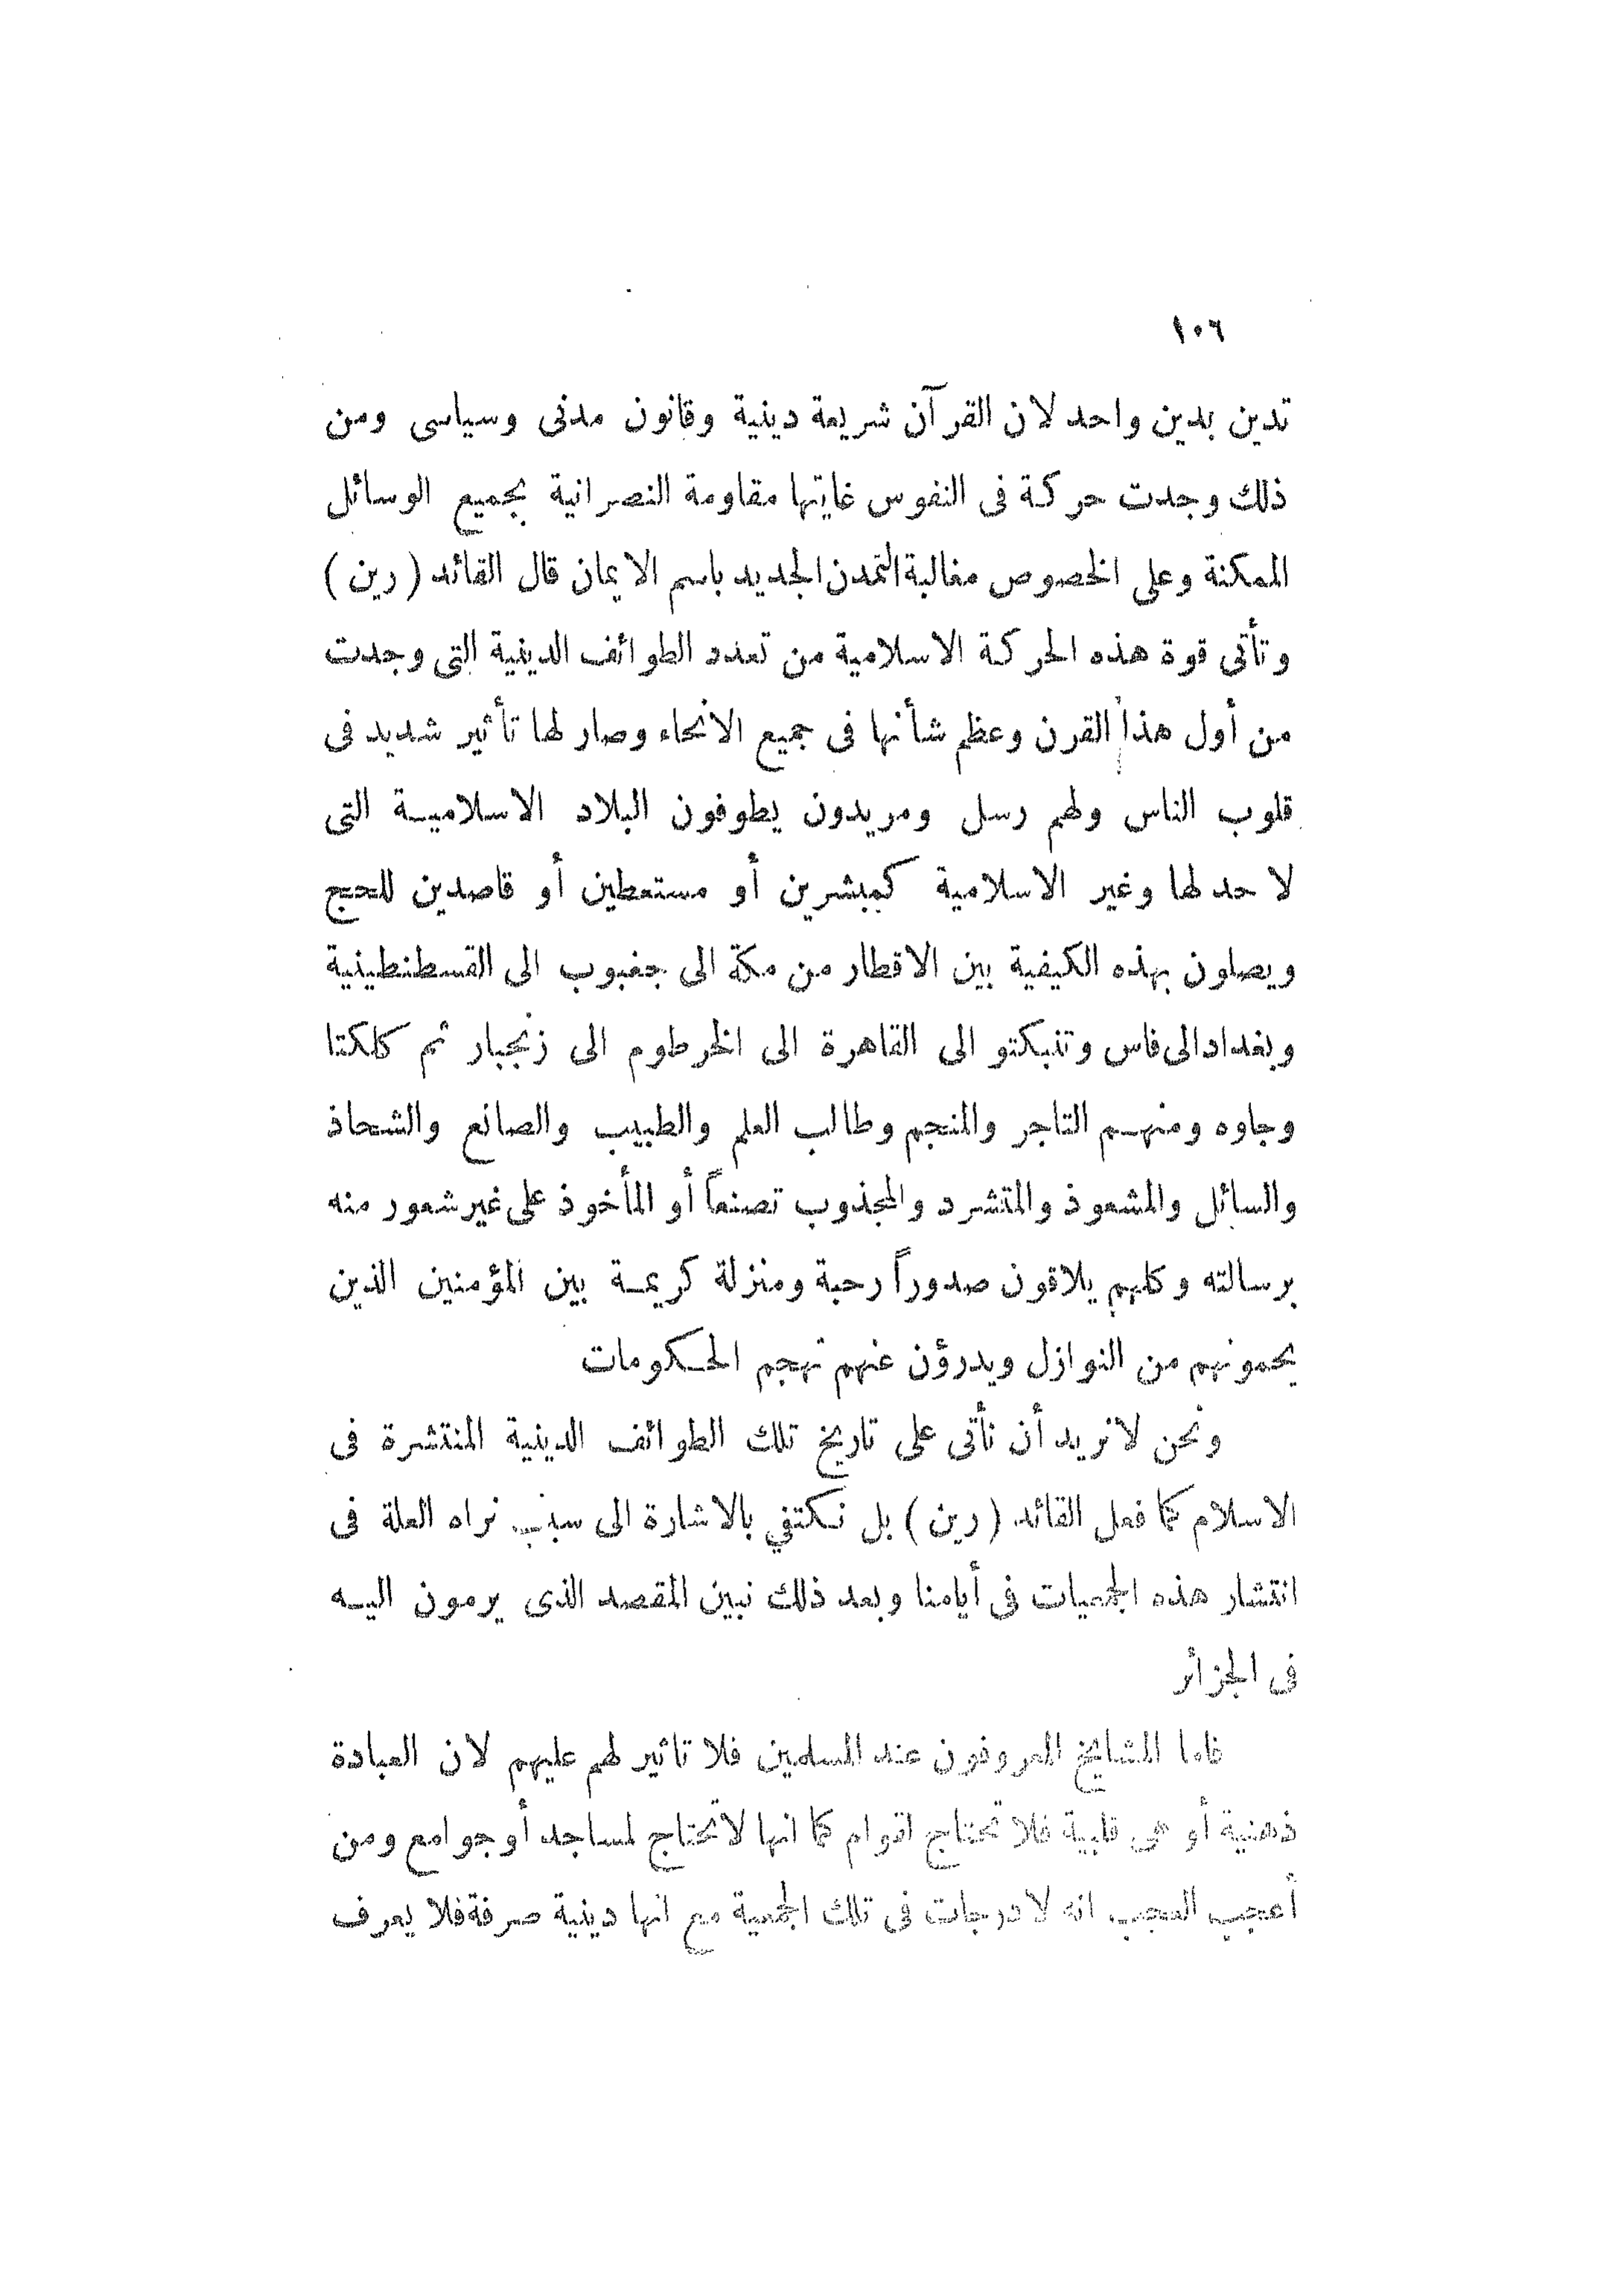 ١٠٦
تدين بدين واحد لان القرآن شريعة دينية وقانون مدنى وسياسى ومن
ذلك وجدت حركة فى النفوس غايتها مقاومة النصرانية بجميع الوسائل
الممكنة وعلى الخصوص مغالبة التمدن الجديد باسم الايمان قال القائد ( رين )
وتأتى قوة هذه الحركة الاسلامية من تعدد الطوائف الدينية التى وجدت
من أول هذا القرن وعظم شأنها فى جميع الانحاء وصار لها تأثير شديد فى
قلوب الناس ولهم رسل ومريدون يطوفون البلاد الاسلامية التى
لا حد لها وغير الاسلامية كمبشرين أو مستعطين أو قاصدين للحج
ويصلون بهذه الكيفية بين الاقطار من مكة الى جغبوب الى القسطنطينية
وبغداد الى فاس وتنبكتو الى القاهرة الى الخرطوم الى زنجبار ثم كلكتا
وجاوه ومنهم التاجر والمنجم وطالب العلم والطبيب والصانع والشحاذ
والسائل والمشعوذ والمتشرد والمجذوب تصنعاً أو المأخوذ على غير شعور منه
برسالته وكلهم يلاقون صدوراً رحبة ومنزلة كريمة بين المؤمنين الذين
يحمونهم من النوازل ويدرؤن عنهم تهجم الحكومات
ونحن لا نريد أن نأتى على تاريخ تلك الطوائف الدينية المنتشرة فى
الاسلام كما فعل القائد ( رين ) بل نكتفي بالاشارة الى سبب نراه العلة فى
انتشار هذه الجمعيات فى أيامنا وبعد ذلك نبين المقصد الذى يرمون اليه
فى الجزائر
فاما المشايخ المعروفون عند المسلمين فلا تاثير لهم عليهم لان العبادة
ذهنية أو هى قلبية فلا تحتاج اقوام كما انها لا تحتاج لمساجد أو جوامع ومن
أعجب العجب انه لا درجات فى تلك الجمعية مع انها دينية صرفة فلا يعرف